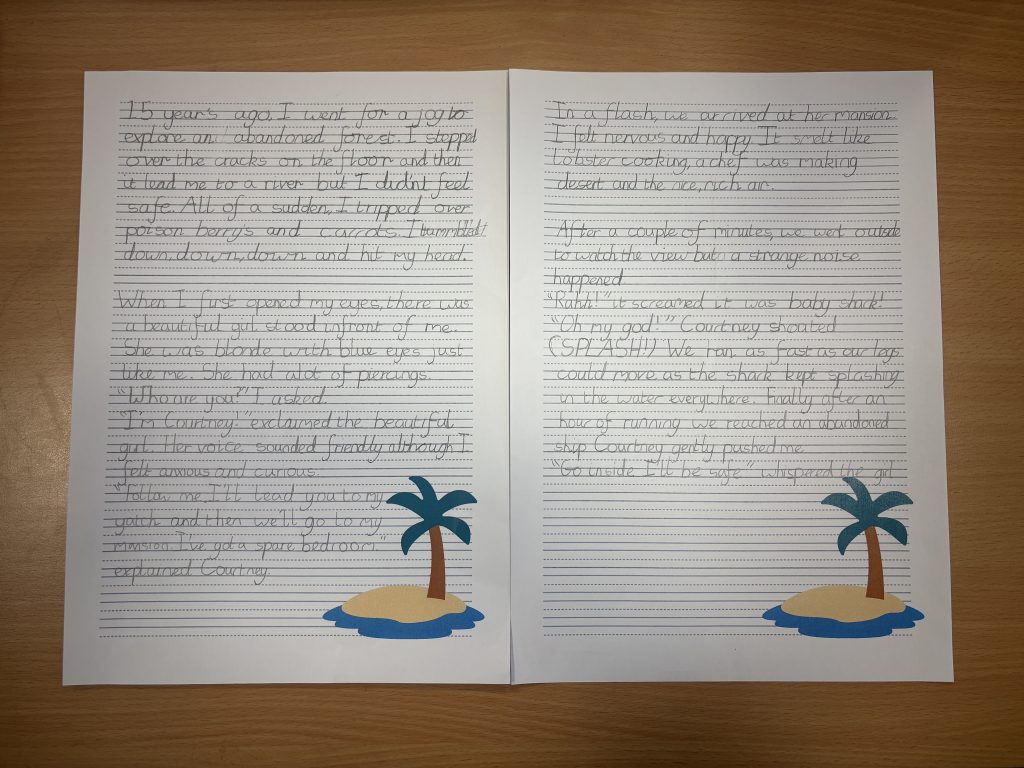 15 year's ago, I went for a jog to
explore an abandoned forest. I stepped
over the cracks on the floor and then
it lead me to a river but I didn't feel
safe. All of a sudden, I tripped over
poison berry's and carrots. I
down, down, down and hit my head.
When I first opened my eyes, there was
a beautiful girl stood infront of me.
She was blonde with blue eyes just
like me. She had alot of piercings.
"Who are you?" I asked.
"I'm Courtney!" exclaimed the beautiful
girl. Her voice sounded friendly although I
felt anxious and curious.
"Follow me, I'll lead you to my
yatch and then we'll go to my
mansion. I've got a spare bedroom"
explained Courtney.
In a flash, we arrived at her mansion.
I felt nervous and happy. It smelt like
lobster cooking, a chef was making
desert and the nice, rich air.
After a couple of minutes, we went outside
to watch the view but a strange noise
happened.
"Rahh!" it screamed it was baby shark!
"Oh my god!" Courtney shoated
(SPLASH!) We ran as fast as our legs
could move as the shark kept splashing
in the water everywhere. Finally after an
hour of running we reached an abandoned
ship Courtney gently pushed me.
"Go inside I'll be safe" whispered the girl